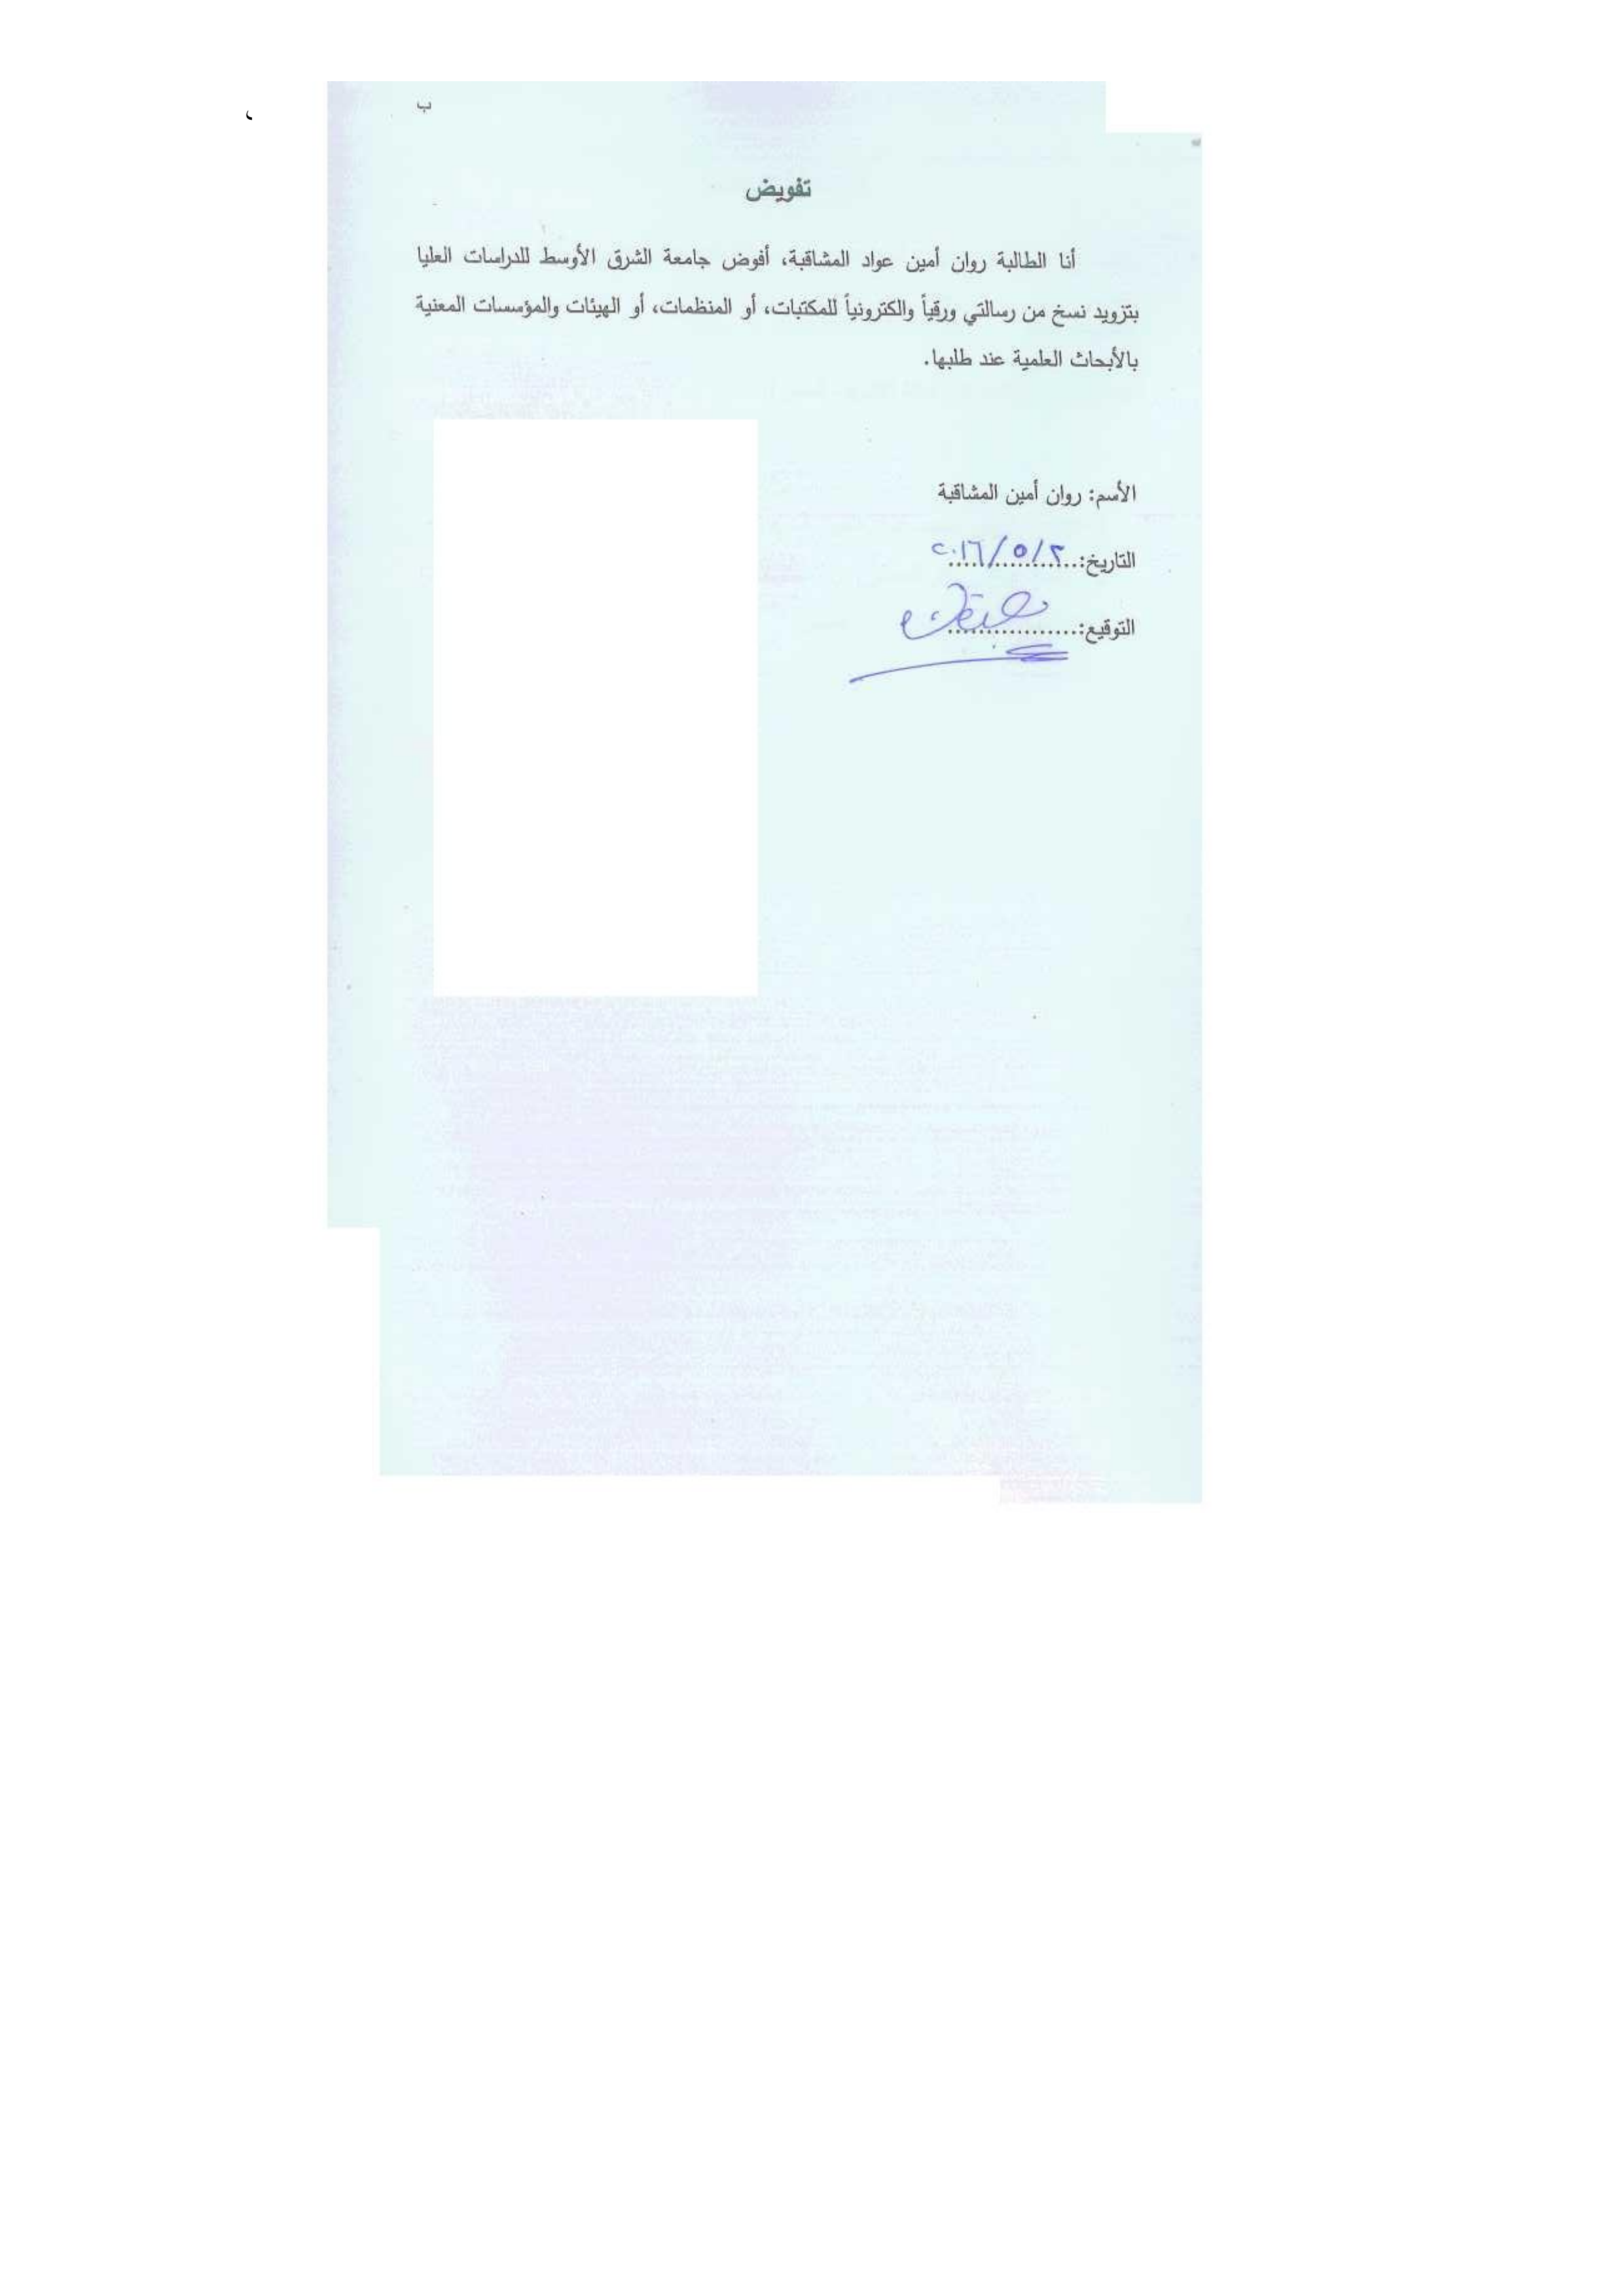 ب
تفويض
أنا الطالبة روان أمين عواد المشاقبة، أفوض جامعة الشرق الأوسط للدراسات العليا
بتزويد نسخ من رسالتي ورقياً والكترونياً للمكتبات، أو المنظمات، أو الهيئات والمؤسسات المعنية
بالأبحاث العلمية عند طلبها.
الأسم: روان أمين المشاقبة
التاريخ:..٢٠١٦/٥/٢
التوقيع:..................